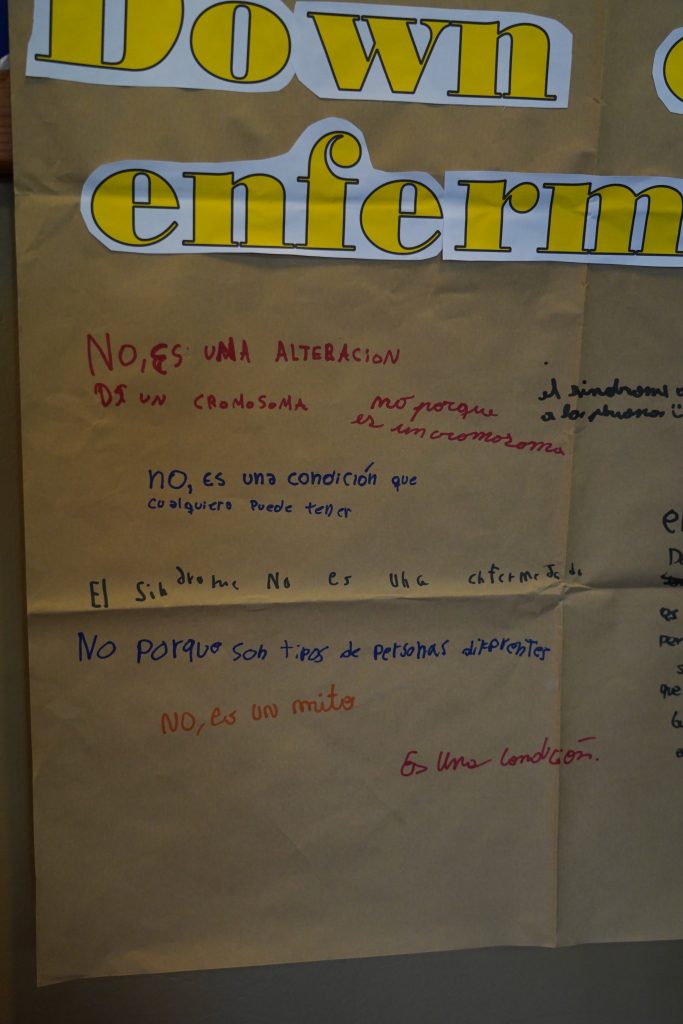 Down
enferm
NO, ES UNA ALTERACION
DE UN CROMOSOMA
no porque
es un cromosoma
el sindrome
a las personas
NO, ES una condición que
cualquiera puede tener
El Sindrome No es una enfermedada
NO porque son tipos de personas diferentes
NO, es un mito
Es una condición.
es
per
que